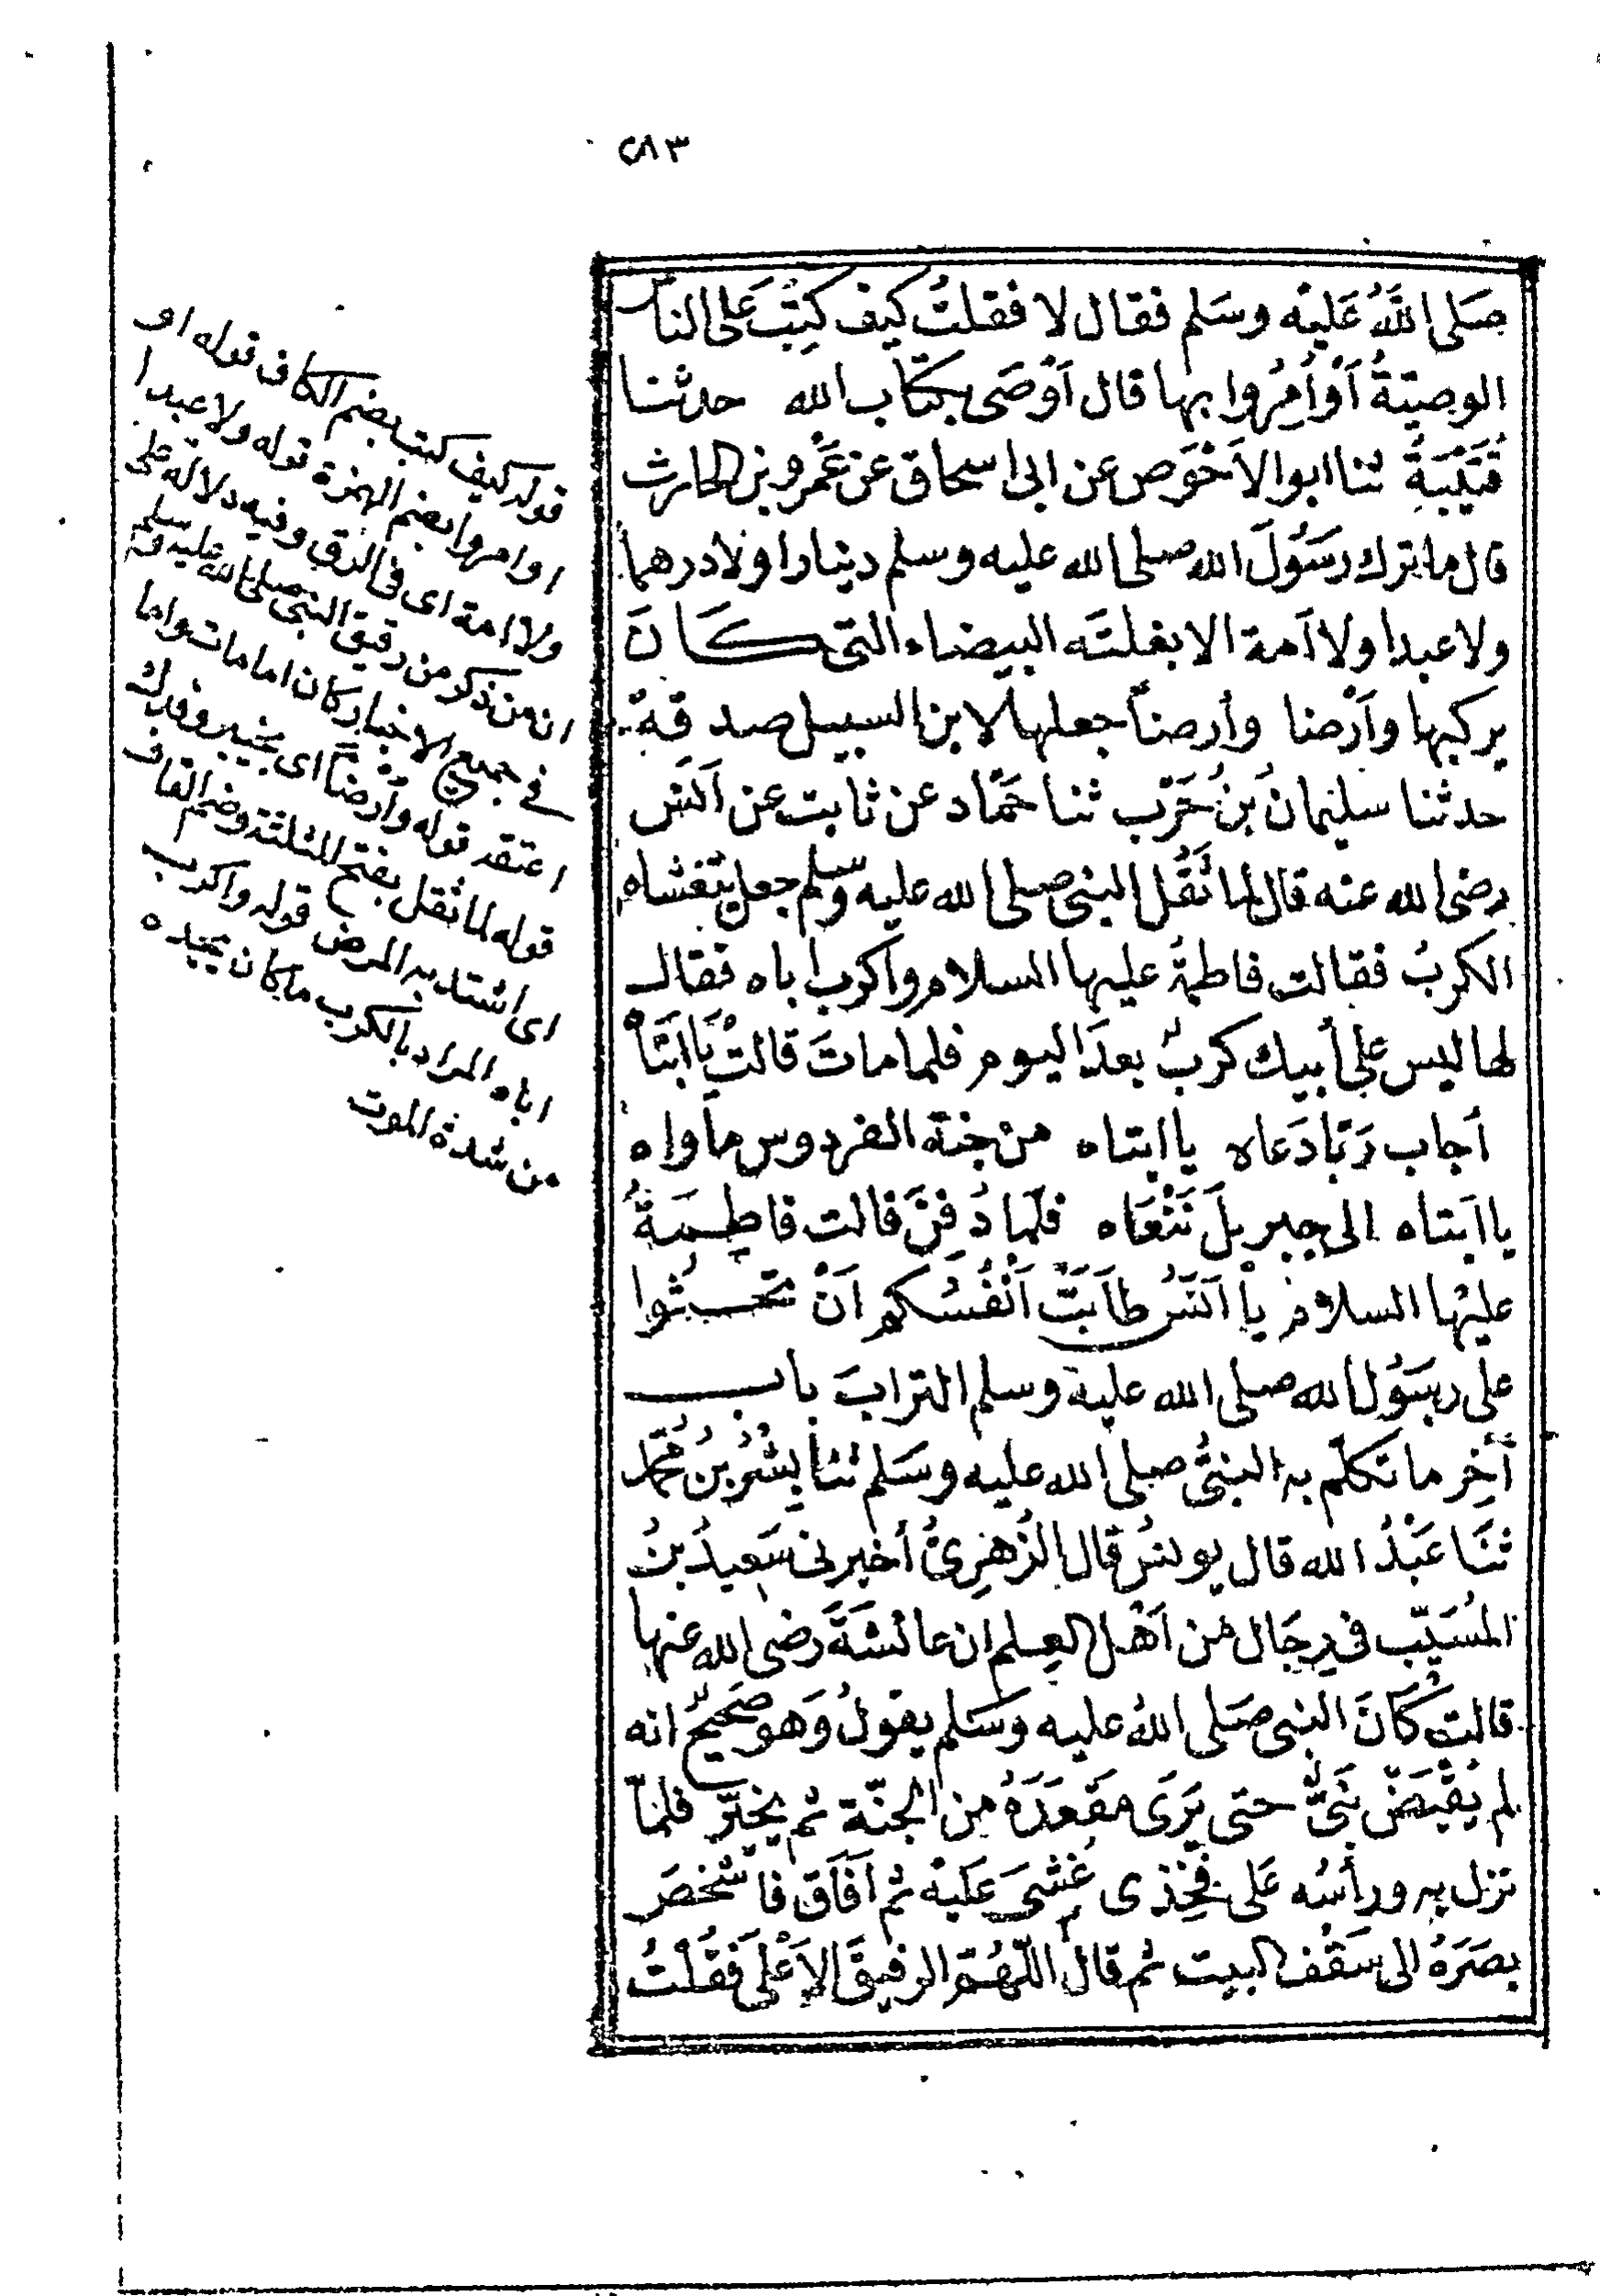 ٢٨٣
صَلى اللهُ عَليْه وسَلم فقال لا فقلتُ كيف كُتِبَ عَلى الناس
الوصيّةُ أوْ أُمِرُوا بها قال أوْصَى بكتاب الله حدثنا
قُتَيْبَةُ ثنا ابو الأَحْوَص عن ابى اسحاق عن عَمْرو بن الحارث
قال ما ترك رسُولَ الله صلى الله عليه وسلم دينارا ولا درهما
ولا عبدا ولا أمة الا بغلتَه البيضاء التى كَانَ
يركبها وأرْضا وأرضاً جعلها لابن السبيل صدقةً
حدثنا سليمانُ بنُ حَرْب ثنا حمّاد عن ثابت عن أنَس
رضى الله عنه قال لما ثَقُل النبى صلى الله عليه وسلم جعل يتغشاه
الكربُ فقالت فاطمةُ عليها السلام واكرب اباه فقال
لها ليس على أبيك كربٌ بعدَ اليوم فلما ماتَ قالتْ يَا ابَتَاْه
أجاب رَبّا دَعاه يا ابتاه من جنة الفردوس مأواه
يا ابَتاه الى جبريلَ نَنْعَاه فلمّا دُفِنَ قالت فاطِمَةُ
عليْها السلام يا أنَسُ طَابَتْ أنْفُسُكم أَنْ تحثوا
على رسُول الله صلى الله عليه وسلم الترابَ باب
آخِر ما تكلّم به النبىُّ صلى الله عليه وسَلم ثنا بِشْرُ بنُ محمّد
ثنَا عَبْدُ الله قال يونسُ قال الزُهرِىُّ أخبرنى سَعيدُ بنُ
المُسَيّب فى رِجَال من أهْل العِلم ان عائشَةَ رضى الله عنها
قالت كَانَ النبى صَلى اللهُ عليه وسَلم يقولُ وَهو صَحيحٌ انه
لم يُقْبَضْ نَبىٌّ حتى يَرَى مَقعَدَهُ من الجنّة ثم يخيّر فلمّا
نزل به ورأسُه عَلى فخِذى غُشىَ عَليه ثم أفَاق فاشخصَ
بصَرَهُ الى سَقْف البيت ثم قال اللّهُمّ الرفيقَ الاَعْلى فَقُلتُ
قوله كيف كتب بضم الكاف قوله او
او امروا بضم الهمزة قوله ولا عبدا
ولا امة اى فى الرق وفيه دلالة على
ان من ذكر من رقيق النبى صلى الله عليه وسلم
فى جميع الاخبار كان اما مات واما
اعتقه قوله وأرضاً اى بخيبر وفدك
قوله لما ثقل بفتح المثلثة وضم القاف
اى اشتد به المرض قوله واكرب
اباه المراد بالكرب ما كان يجده
من شدة الموت